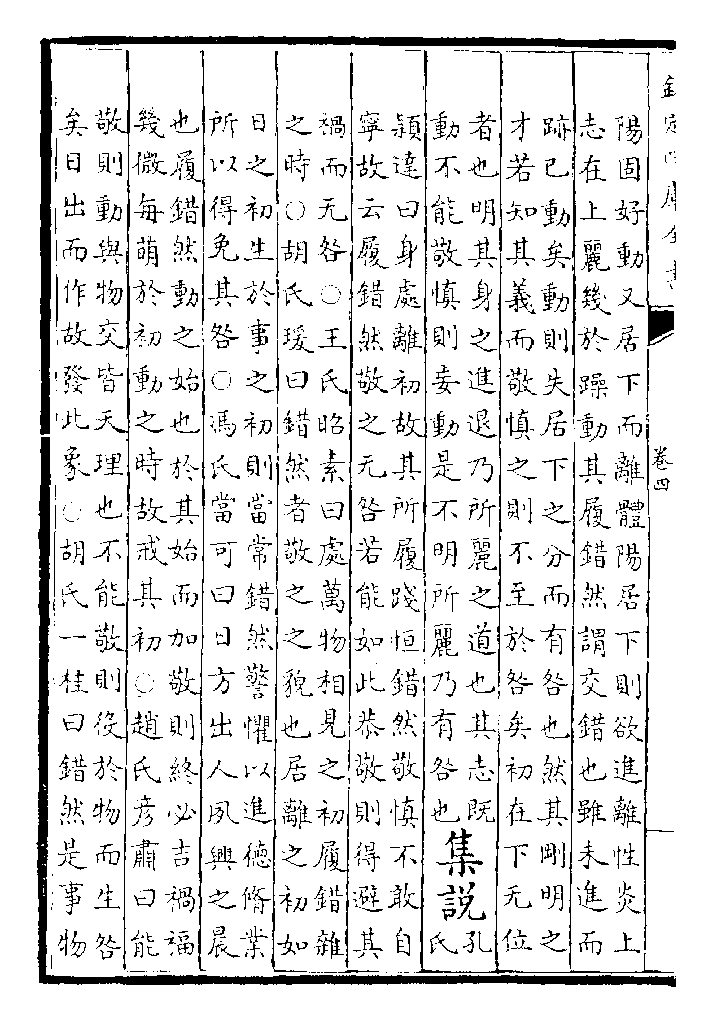 欽定四庫全書
卷四
陽固好動又居下而離體陽居下則欲進離性炎上
志在上麗幾於躁動其履錯然謂交錯也雖未進而
跡已動矣動則失居下之分而有咎也然其剛明之
才若知其義而敬慎之則不至於咎矣初在下无位
者也明其身之進退乃所麗之道也其志既
動不能敬慎則妄動是不明所麗乃有咎也
集說
孔氏
穎達曰身處離初故其所履踐恒錯然敬慎不敢自
寧故云履錯然敬之无咎若能如此恭敬則得避其
禍而无咎○王氏昭素曰處萬物相見之初履錯雜
之時○胡氏瑗曰錯然者敬之之貌也居離之初如
日之初生於事之初則當常錯然警懼以進德脩業
所以得免其咎○馮氏當可曰日方出人夙興之晨
也履錯然動之始也於其始而加敬則終必吉禍福
幾微每萌於初動之時故戒其初○趙氏彥肅曰能
敬則動與物交皆天理也不能敬則役於物而生咎
矣日出而作故發此象○胡氏一桂曰錯然是事物